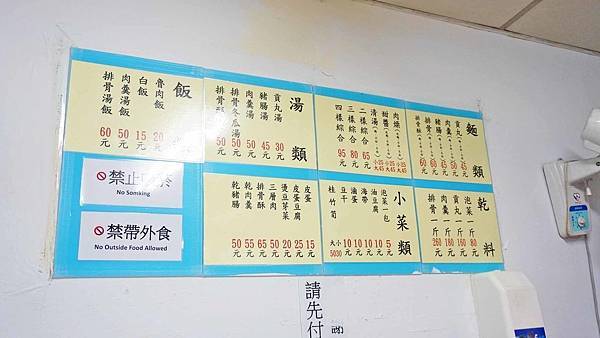 麵類
貢丸(
肉羹(
豬腸(
排骨麵(
45元
50元
60元
60元
肉燥(
甜醬(
清湯(
二樣綜合 65元
三樣綜合 80元
四樣綜合 95元
湯類
貢丸湯 30元
豬腸湯 45元
肉羹湯 50元
排骨冬瓜湯 50元
50元
飯
魯肉飯 20
白飯 15元
肉羹湯飯 50元
排骨湯飯 60元
乾料
泡菜一斤 80元
貢丸一斤 160元
肉羹一斤 180元
排骨一斤 260元
小菜類
泡菜一包 5元
油豆腐 10元
海帶 10元
滷蛋 10元
豆干 10元
桂竹筍 大50 小30
皮蛋 15元
皮蛋豆腐 25元
燙豆芽菜 20元
三層肉 50元
排骨酥 65元
乾肉羹 55元
乾豬腸 50元
禁止
No Somking
禁帶外食
No Outside Food Allowed
請先付
謝